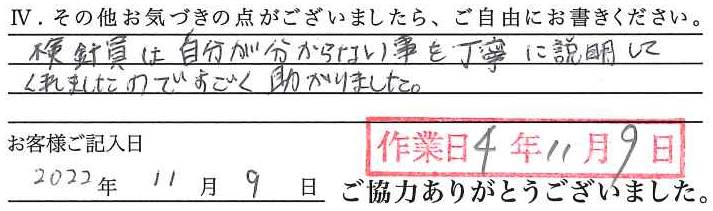 Ⅳ．その他お気づきの点がございましたら、ご自由にお書きください。
検針員は自分が分からない事を丁寧に説明して
くれましたのですごく助かりました。
お客様ご記入日
作業日4年11月9日
2022年 11月 9日
ご協力ありがとうございました。